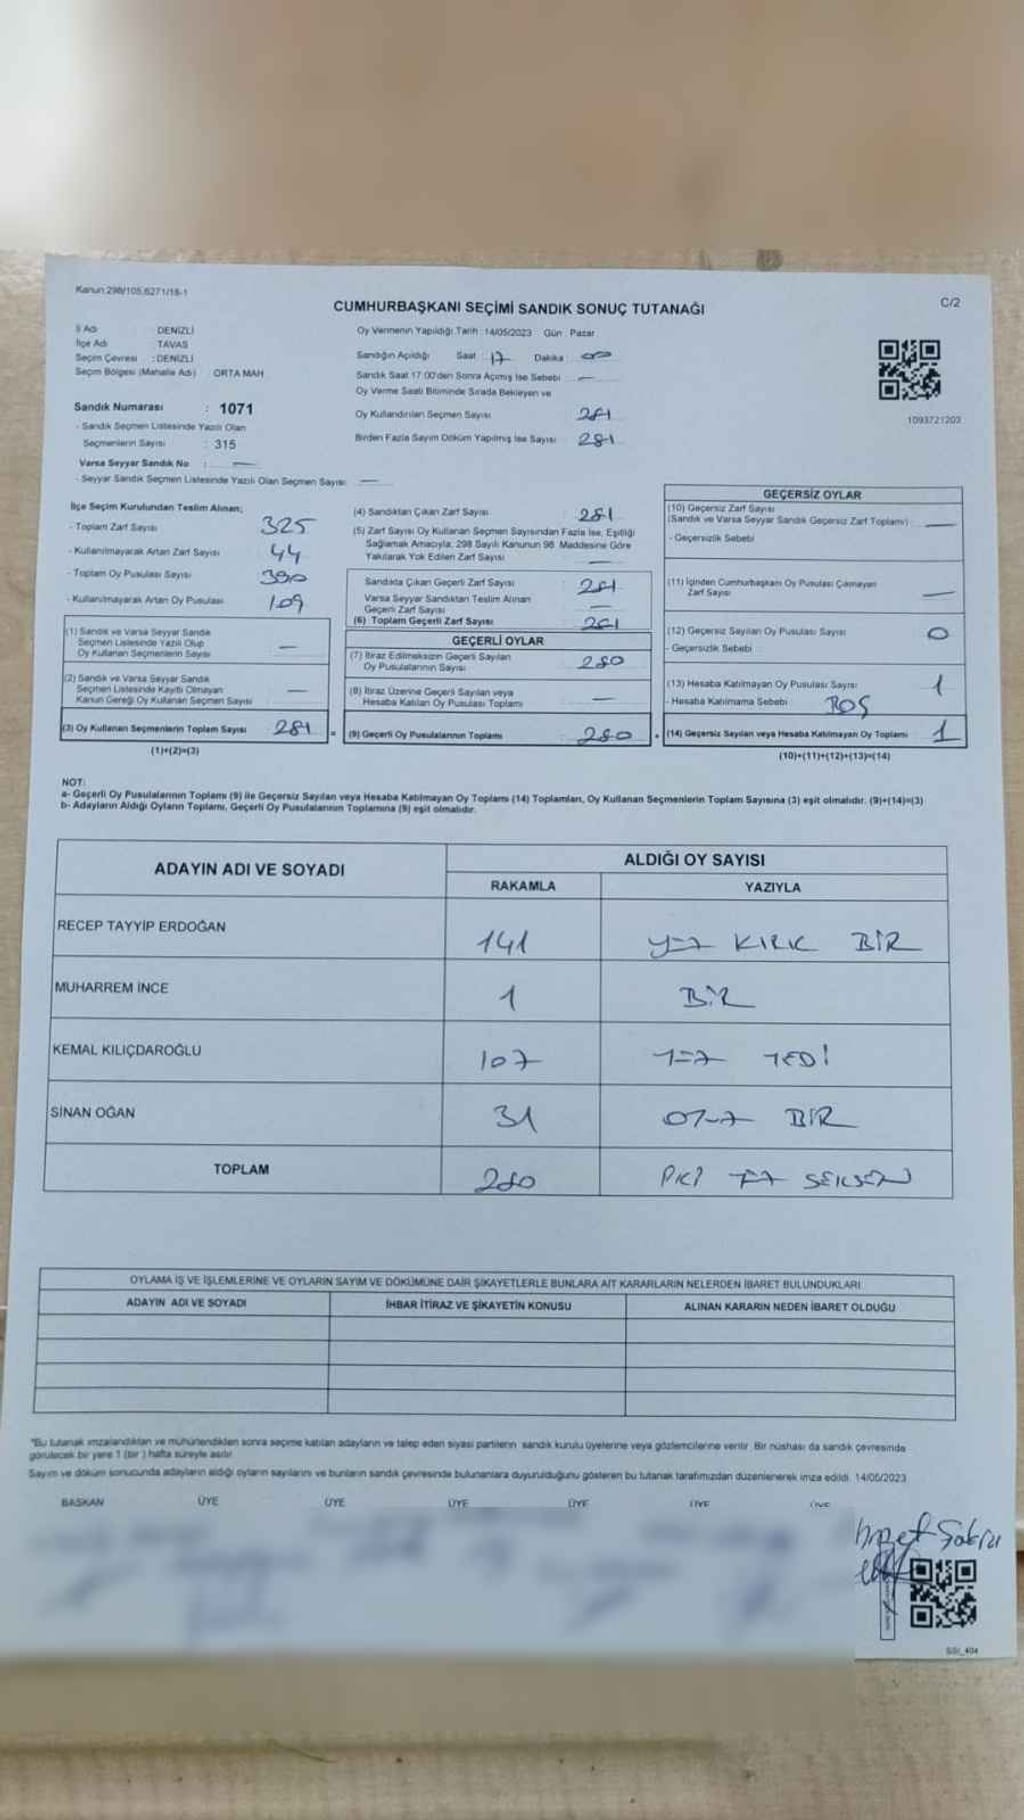 Kanun 298/105,6271/18-1
CUMHURBAŞKANI SEÇİMİ SANDIK SONUÇ TUTANAĞI
C/2
İl Adı DENİZLİ
İlçe Adı TAVAS
Seçim Çevresi : DENİZLİ
Seçim Bölgesi (Mahalle Adı) ORTA MAH
Sandık Numarası : 1071
- Sandık Seçmen Listesinde Yazılı Olan
Seçmenlerin Sayısı : 315
Varsa Seyyar Sandık No : —
- Seyyar Sandık Seçmen Listesinde Yazılı Olan Seçmen Sayısı —
Oy Vermenin Yapıldığı Tarih : 14/05/2023 Gün Pazar
Sandığın Açıldığı Saat : 17 Dakika : 00
Sandık Saat 17:00'den Sonra Açımış İse Sebebi : —
Oy Verme Saati Bitiminde Sırada Bekleyen ve
Oy Kullandırılan Seçmen Sayısı 281
Birden Fazla Sayım Döküm Yapılmış İse Sayısı 281
1093721203
İlçe Seçim Kurulundan Teslim Alınan;
- Toplam Zarf Sayısı 325
- Kullanılmayarak Artan Zarf Sayısı 44
- Toplam Oy Pusulası Sayısı 390
- Kullanılmayarak Artan Oy Pusulası 109
(1) Sandık ve Varsa Seyyar Sandık
Seçmen Listesinde Yazılı Olup
Oy Kullanan Seçmenlerin Sayısı —
(2) Sandık ve Varsa Seyyar Sandık
Seçmen Listesinde Kayıtlı Olmayan
Kanun Gereği Oy Kullanan Seçmen Sayısı —
(3) Oy Kullanan Seçmenlerin Toplam Sayısı 281 =
(1)+(2)=(3)
(4) Sandıktan Çıkan Zarf Sayısı 281
(5) Zarf Sayısı Oy Kullanan Seçmen Sayısından Fazla İse, Eşitliği
Sağlamak Amacıyla, 298 Sayılı Kanunun 98. Maddesine Göre
Yakılarak Yok Edilen Zarf Sayısı —
Sandıkta Çıkan Geçerli Zarf Sayısı : 281
Varsa Seyyar Sandıktan Teslim Alınan
Geçerli Zarf Sayısı —
(6) Toplam Geçerli Zarf Sayısı 281
GEÇERLİ OYLAR
(7) İtiraz Edilmeksizin Geçerli Sayılan
Oy Pusulalarının Sayısı : 280
(8) İtiraz Üzerine Geçerli Sayılan veya
Hesaba Katılan Oy Pusulası Toplamı —
(9) Geçerli Oy Pusulalarının Toplamı 280 +
GEÇERSİZ OYLAR
(10) Geçersiz Zarf Sayısı
(Sandık ve Varsa Seyyar Sandık Geçersiz Zarf Toplamı) —
- Geçersizlik Sebebi
(11) İçinden Cumhurbaşkanı Oy Pusulası Çıkmayan
Zarf Sayısı —
(12) Geçersiz Sayılan Oy Pusulası Sayısı 0
- Geçersizlik Sebebi
(13) Hesaba Katılmayan Oy Pusulası Sayısı 1
- Hesaba Katılmama Sebebi BOŞ
(14) Geçersiz Sayılan veya Hesaba Katılmayan Oy Toplamı 1
(10)+(11)+(12)+(13)=(14)
NOT:
a- Geçerli Oy Pusulalarının Toplamı (9) ile Geçersiz Sayılan veya Hesaba Katılmayan Oy Toplamı (14) Toplamları, Oy Kullanan Seçmenlerin Toplam Sayısına (3) eşit olmalıdır. (9)+(14)=(3)
b- Adayların Aldığı Oyların Toplamı, Geçerli Oy Pusulalarının Toplamına (9) eşit olmalıdır.
ADAYIN ADI VE SOYADI ALDIĞI OY SAYISI
RAKAMLA YAZIYLA
RECEP TAYYİP ERDOĞAN 141 KIRK BİR
MUHARREM İNCE 1 BİR
KEMAL KILIÇDAROĞLU 107 YEDİ
SİNAN OĞAN 31 BİR
TOPLAM 280 SEKSEN
OYLAMA İŞ VE İŞLEMLERİNE VE OYLARIN SAYIM VE DÖKÜMÜNE DAİR ŞİKAYETLERLE BUNLARA AİT KARARLARIN NELERDEN İBARET BULUNDUKLARI
ADAYIN ADI VE SOYADI İHBAR İTİRAZ VE ŞİKAYETİN KONUSU ALINAN KARARIN NEDEN İBARET OLDUĞU
*Bu tutanak imzalandıktan ve mühürlendikten sonra seçime katılan adayların ve talep eden siyasi partilerin sandık kurulu üyelerine veya gözlemcilerine verilir. Bir nüshası da sandık çevresinde
görülecek bir yere 1 (bir) hafta süreyle asılır.
Sayım ve döküm sonucunda adayların aldığı oyların sayılarını ve bunların sandık çevresinde bulunanlara duyurulduğunu gösteren bu tutanak tarafımızdan düzenlenerek imza edildi. 14/05/2023
BAŞKAN ÜYE ÜYE ÜYE ÜYE ÜYE ÜYE